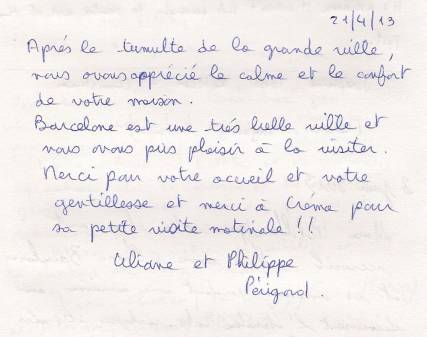 21/4/13
Aprés le tumulte de la grande ville,
nous avons apprécié le calme et le confort
de votre maison.
Barcelone est une trés belle ville et
nous avons pris plaisir à la visiter.
Merci pour votre accueil et votre
gentillesse et merci à Créma pour
sa petite visite matinale !!
Liliane et Philippe
Périgord.